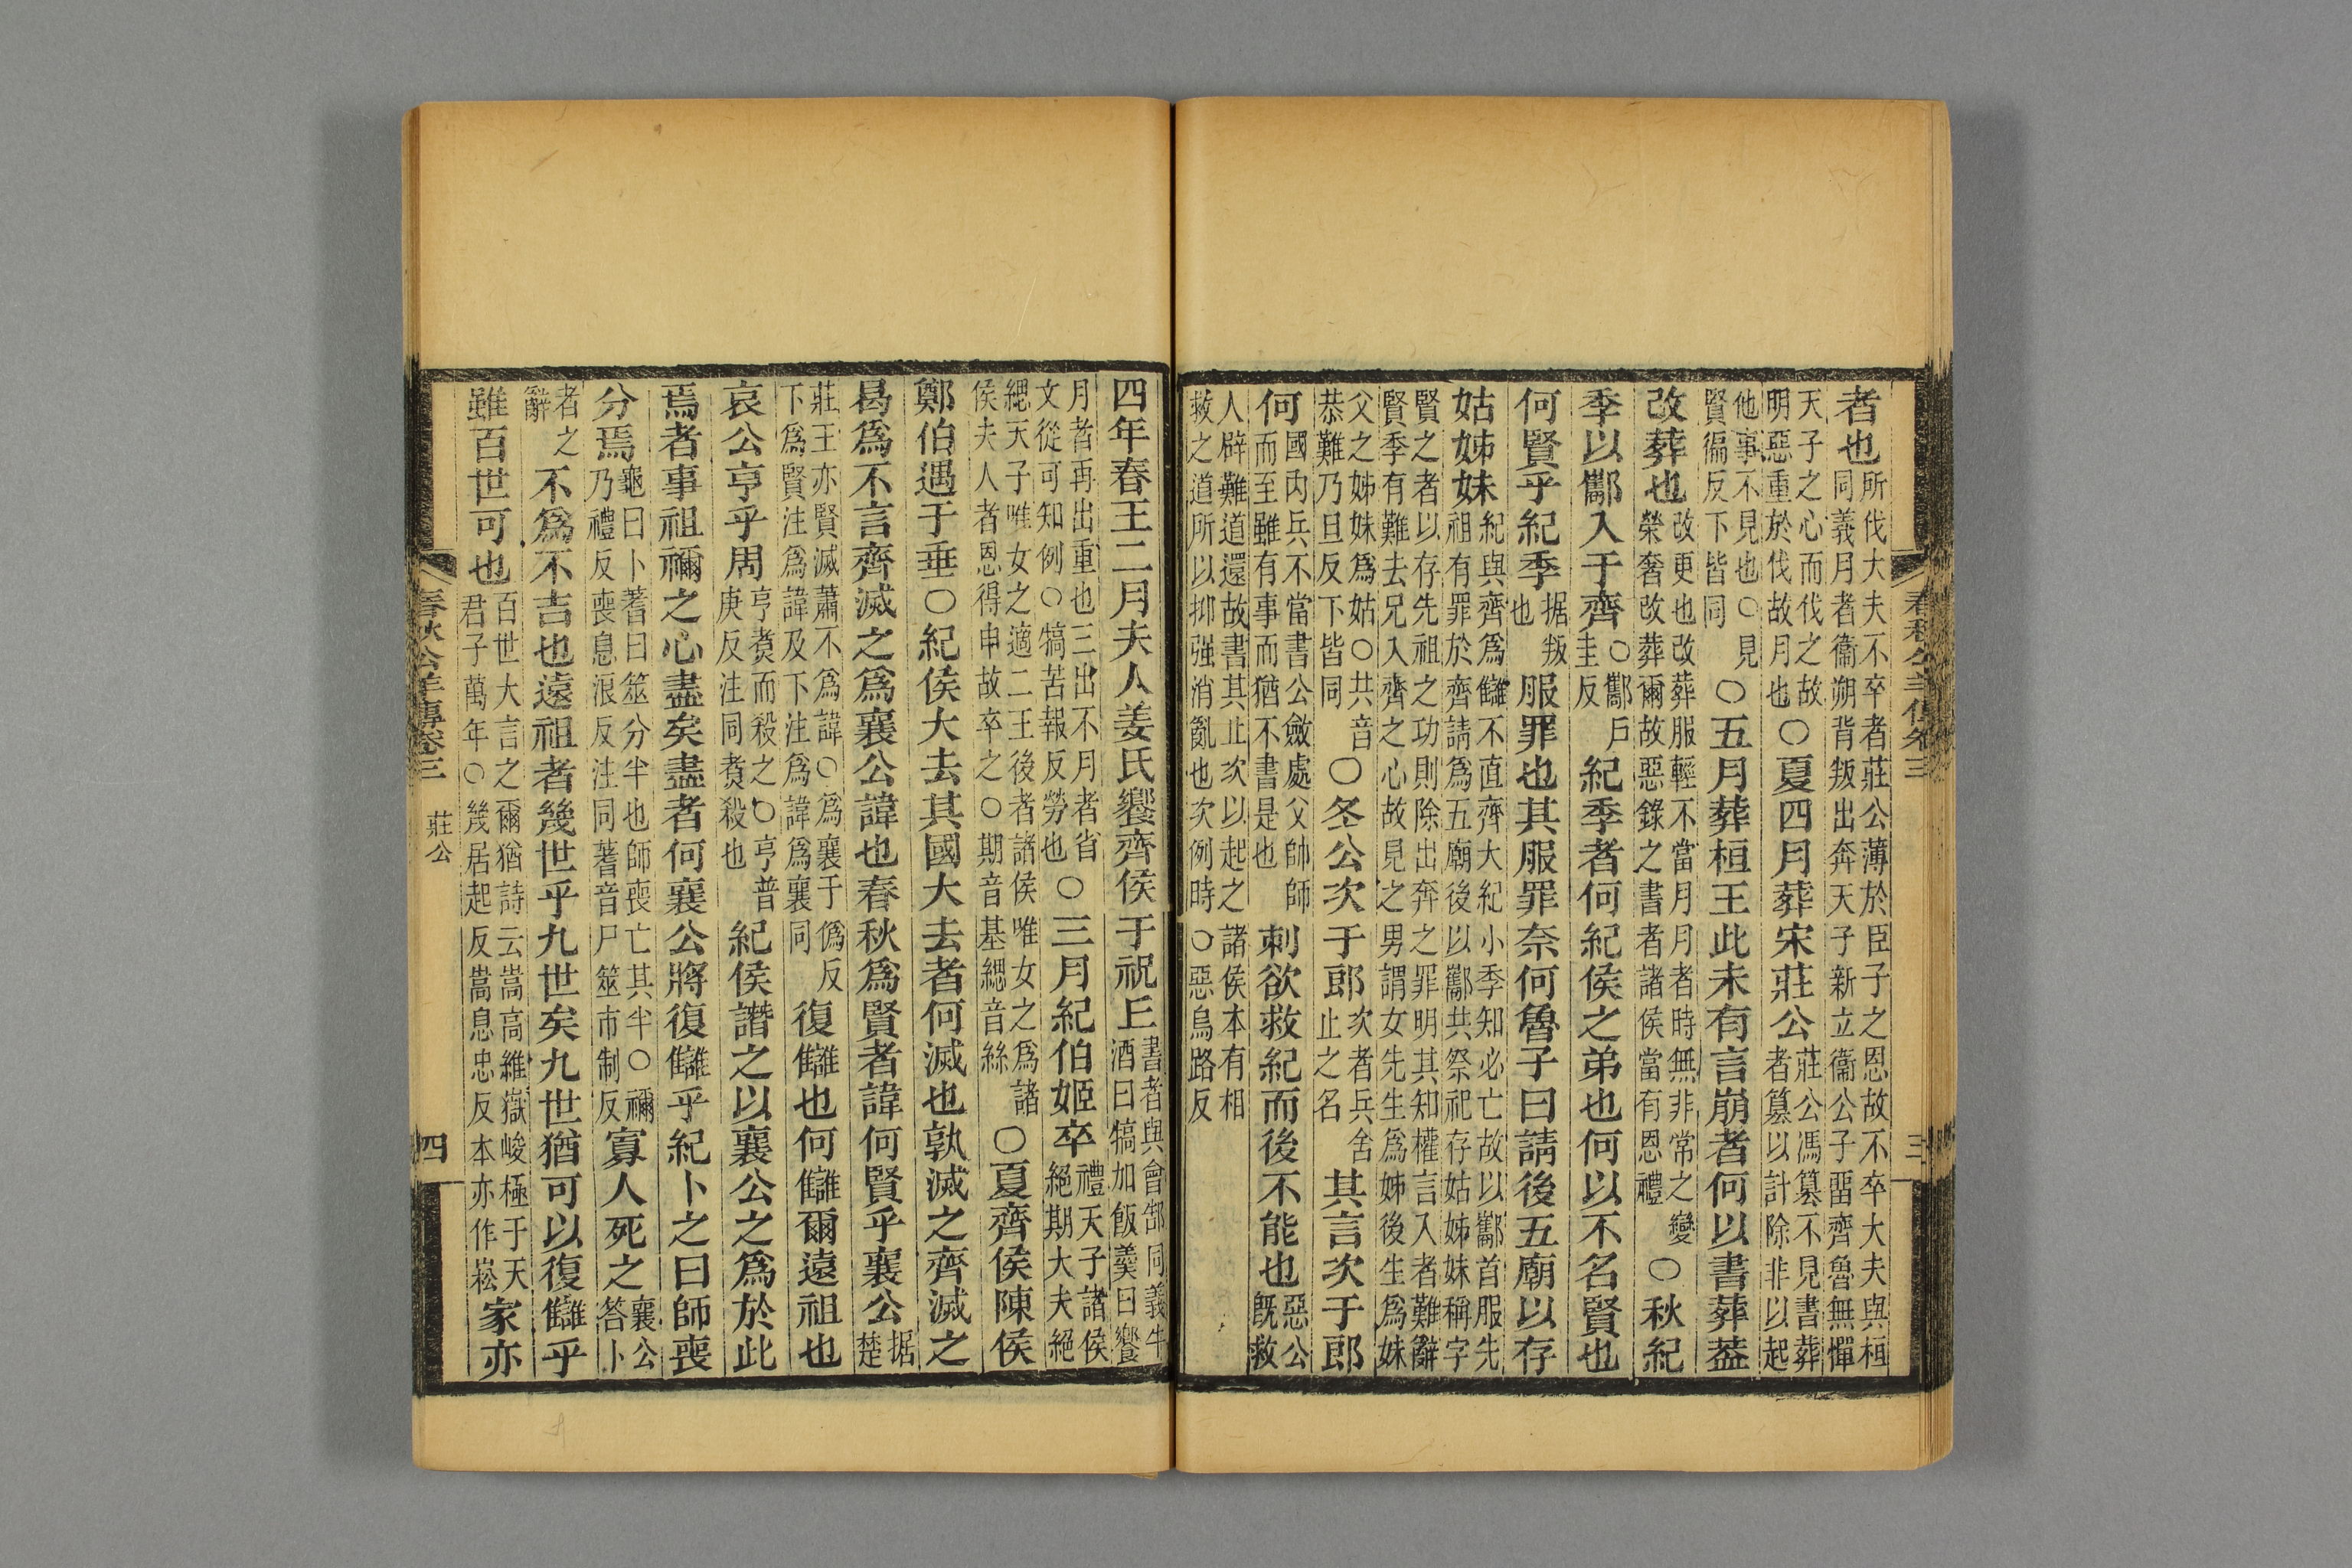 者也所伐大夫不卒者莊公薄於臣子之恩故不卒大夫與桓
同義月者衞朔背叛出奔天子新立衞公子畱齊魯無憚
天子之心而伐之故
明惡重於伐故月也〇夏四月葬宋莊公莊公馮篡不見書葬
者篡以計除非以起
他事不見也〇見
賢徧反下皆同〇五月葬桓王此未有言崩者何以書葬葢
改葬也改更也改葬服輕不當月月者時無非常之變
榮奢改葬爾故惡錄之書者諸侯當有恩禮〇秋紀
季以酅入于齊〇酅戶
圭反紀季者何紀侯之弟也何以不名賢也
何賢乎紀季据叛
也服罪也其服罪奈何魯子曰請後五廟以存
姑姊妹紀與齊爲讎不直齊大紀小季知必亡故以酅首服先
祖有罪於齊請爲五廟後以酅共祭祀存姑姊妹稱字
賢之者以存先祖之功則除出奔之罪明其知權言入者難辭
賢季有難去兄入齊之心故見之男謂女先生爲姊後生爲妹
父之姊妹爲姑〇共音
恭難乃旦反下皆同〇冬公次于郎次者兵舍
止之名其言次于郎
何國內兵不當書公斂處父帥師
而至雖有事而猶不書是也刺欲救紀而後不能也惡公
旣救
人辟難道還故書其止次以起之諸侯本有相
救之道所以抑强消亂也次例時〇惡烏路反
春秋公羊傳卷三
三
四年春王二月夫人姜氏饗齊侯于祝丘書者與會郜同義牛
酒曰犒加飯羹曰饗
月者再出重也三出不月者省
文從可知例〇犒苦報反勞也〇三月紀伯姬卒禮天子諸侯
絕期大夫絕
緦天子唯女之適二王後者諸侯唯女之爲諸
侯夫人者恩得申故卒之〇期音基緦音絲〇夏齊侯陳侯
鄭伯遇于垂〇紀侯大去其國大去者何滅也孰滅之齊滅之
曷爲不言齊滅之爲襄公諱也春秋爲賢者諱何賢乎襄公据
楚
莊王亦賢滅蕭不爲諱〇爲襄于僞反
下爲賢注爲諱及下注爲諱爲襄同復讎也何讎爾遠祖也
哀公亨乎周亨煑而殺之〇亨普
庚反注同煑殺也紀侯譖之以襄公之爲於此
焉者事祖禰之心盡矣盡者何襄公將復讎乎紀卜之曰師喪
分焉龜曰卜蓍曰筮分半也師喪亡其半〇禰
乃禮反喪息浪反注同蓍音尸筮市制反寡人死之襄公
答卜
者之
辭不爲不吉也遠祖者幾世乎九世矣九世猶可以復讎乎
雖百世可也百世大言之爾猶詩云嵩高維嶽峻極于天
君子萬年〇幾居起反嵩息忠反本亦作崧家亦
春秋公羊傳卷三
莊公
四